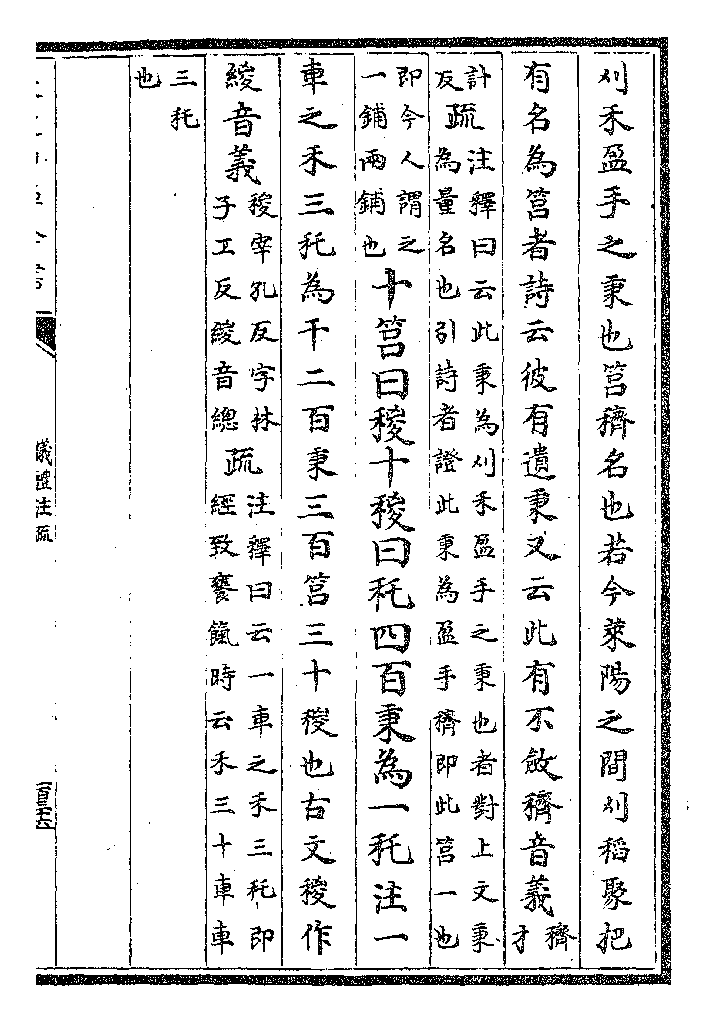 刈禾盈手之秉也筥穧名也若今萊陽之間刈稻聚把
有名為筥者詩云彼有遺秉又云此有不斂穧音義穧才
計反疏注釋曰云此秉為刈禾盈手之秉也者對上文秉為量名也引詩者證此秉為盈手穧即此筥一也
即今人謂之一鋪兩鋪也十筥曰稯十稯曰秅四百秉為一秅注一
車之禾三秅為千二百秉三百筥三十稯也古文稯作
緵音義稯宰孔反字林子工反緵音總疏注釋曰云一車之禾三秅即經致饔餼時云禾三十車車
三秅也
儀禮注疏